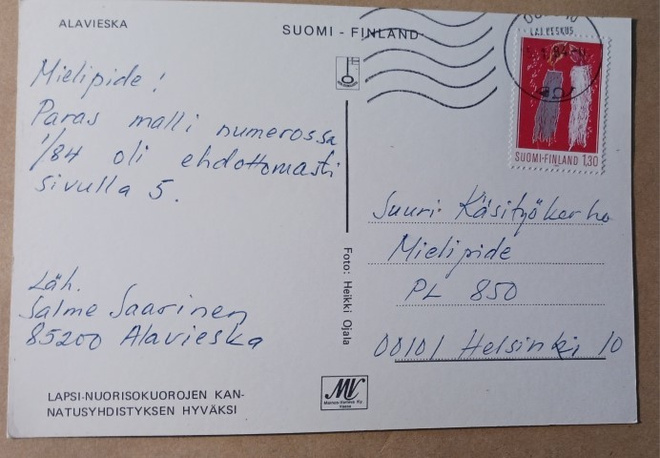 ALAVIESKA
SUOMI - FINLAND
Mielipide!
Paras malli numerossa
1/84 oli ehdottomasti
sivulla 5.
Läh.
Salme Saarinen
85200 Alavieska
LAPSI-NUORISOKUOROJEN KAN-
NATUSYHDISTYKSEN HYVÄKSI
Foto: Heikki Ojala
MV
SUOMI-FINLAND 1,30
Suuri Käsityökerho
Mielipide
PL 850
00101 Helsinki 10